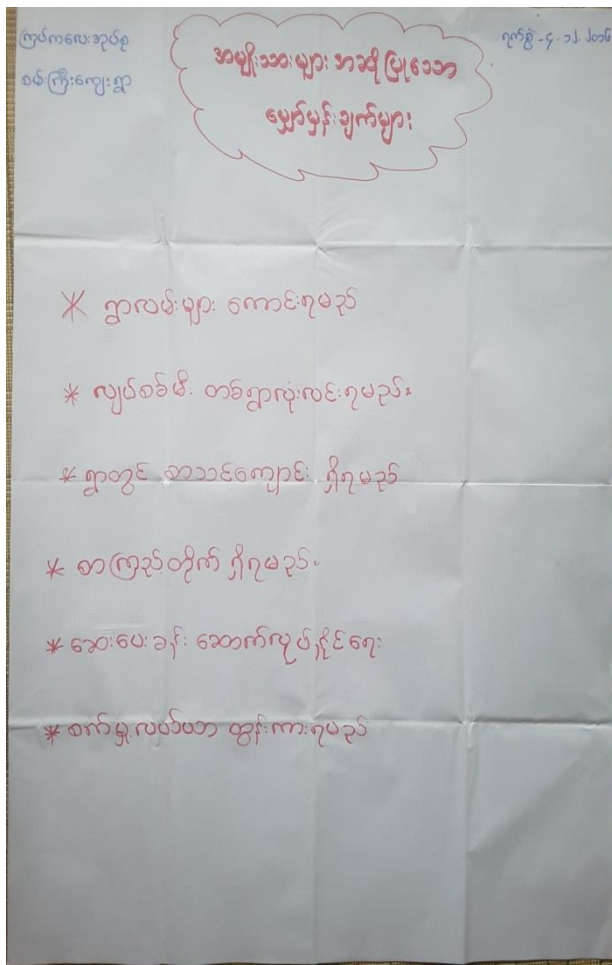 ကြပ်ကလေးအုပ်စု
စမ်းကြီးကျေးရွာ
ရက်စွဲ - ၄ - ၁၂. ၂၀၁၆
အမျိုးသားများ အဆိုပြုသော
မျှော်မှန်းချက်များ
* ရွာလမ်းများ ကောင်းရမည်
* လျှပ်စစ်မီး တစ်ရွာလုံးလင်းရမည်။
* ရွာတွင် စာသင်ကျောင်း ရှိရမည်
* စာကြည့်တိုက် ရှိရမည်။
* ဆေးပေးခန်း ဆောက်လုပ်နိုင်ရေး
* စက်မှု့လယ်ယာ ထွန်းကားရမည်